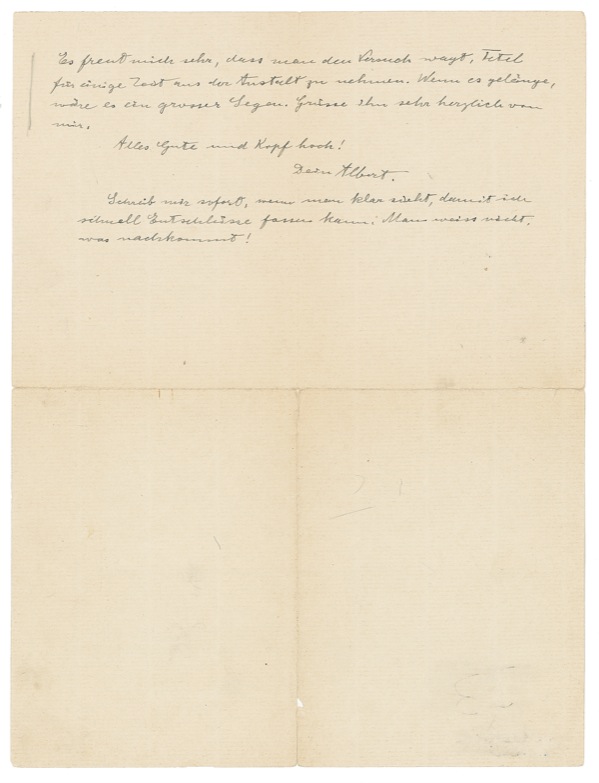 Es freut mich sehr, dass man den Versuch wagt, Tetel
für einige Zeit aus der Anstalt zu nehmen. Wenn es gelänge,
wäre es ein grosser Segen. Grüsse ihn sehr herzlich von
mir.
Alles Gute und Kopf hoch!
Dein Albert.
Schreib mir sofort, wenn man klar sieht, damit ich
schnell Entschlüsse fassen kann; Man weiss nicht,
was nachkommt!